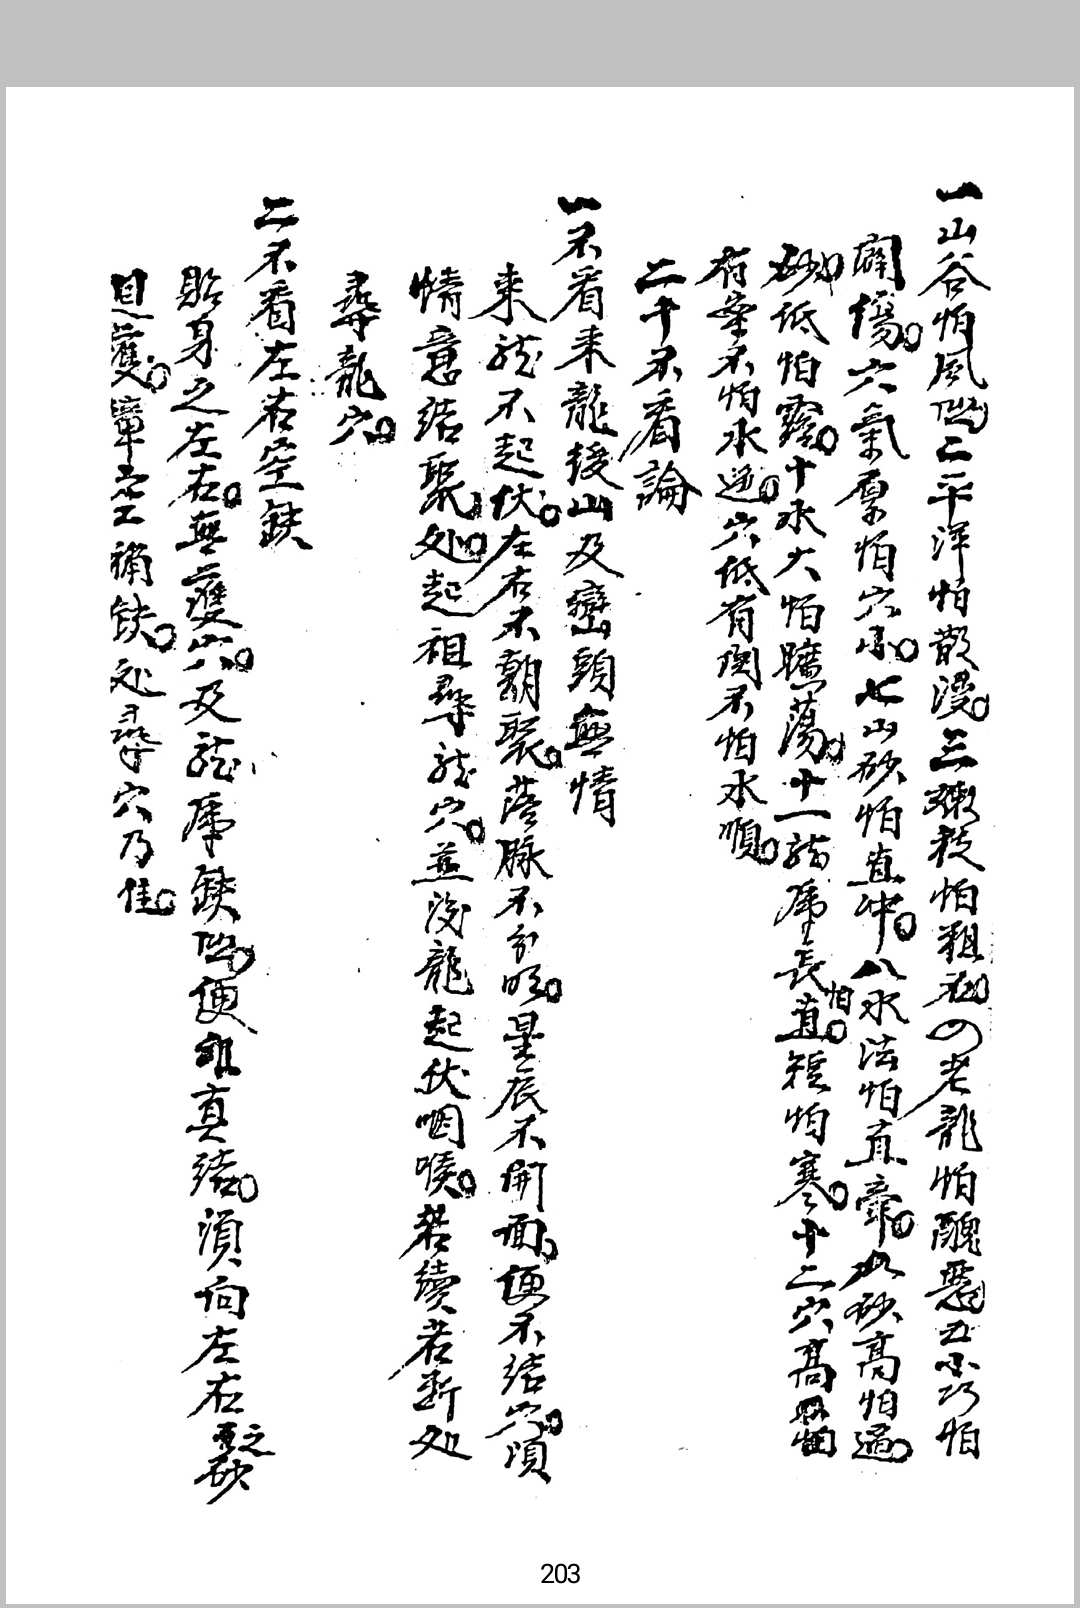 一山谷怕風凹二平洋怕散漫。三嫩枝怕粗砿の老龍怕醜惡五小巧怕
闊蕩。六氣厚怕穴小。七山砂怕直冲。八水法怕直牽。九砂高怕逼。
砂低怕露。十水大怕曠蕩。十一龍虎長怕直。短怕寒。十二穴高
有案不怕水逆。穴低有関不怕水順。
二十不看論
一不看来龍後山及巒頭無情
来龙不起伏。左右不朝聚。落脉不分明。星辰不開面。便不结穴。須
情意结聚。处。起祖尋龙穴。並後龍起伏咽喉。若續若断处
尋龍穴。
二不看左右空缺
貼身之左右。無護穴。及龙虎缺凹。便非真结。須向左右之砂
廻護。障空補缺。处尋穴乃佳。
203